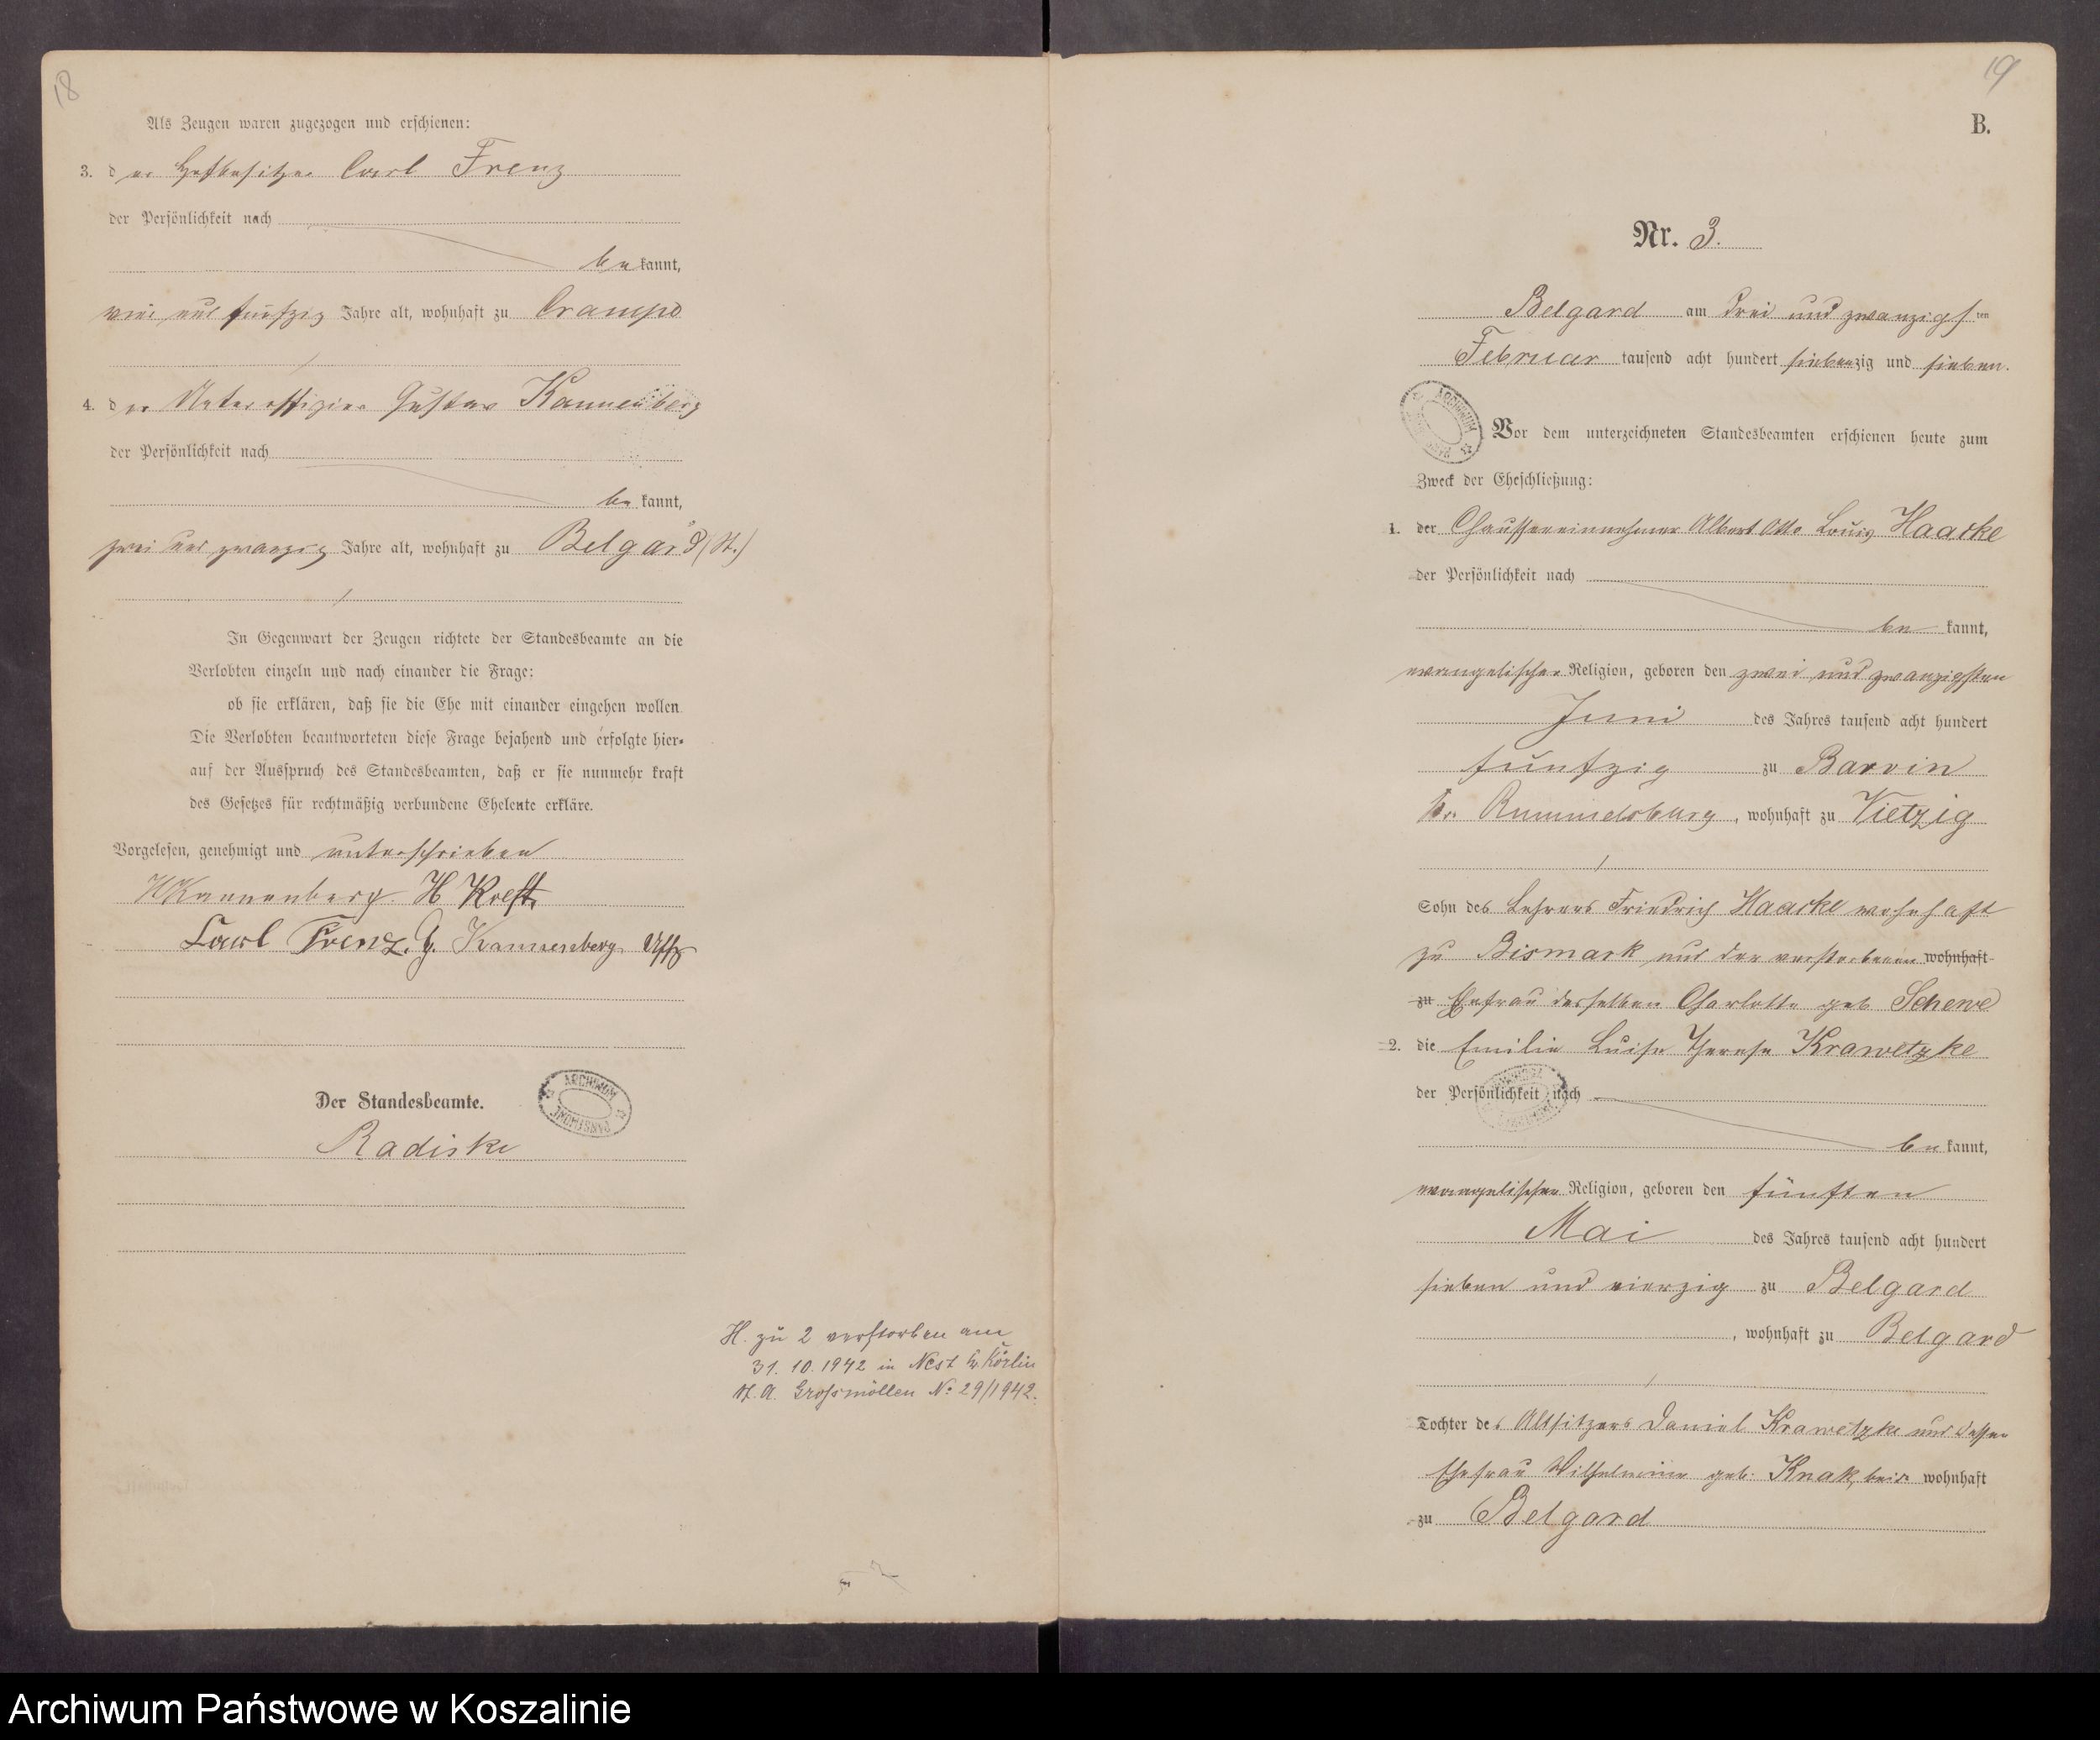 18
Als Zeugen waren zugezogen und erschienen:
3. der Hofbesitzer Carl Frenz
der Persönlichkeit nach
bekannt,
vier und fünfzig Jahre alt, wohnhaft zu Crampe
4. der Unteroffizier Gustav Kannenberg
der Persönlichkeit nach
bekannt,
zwei und zwanzig Jahre alt, wohnhaft zu Belgard (St.)
In Gegenwart der Zeugen richtete der Standesbeamte an die
Verlobten einzeln und nach einander die Frage:
ob sie erklären, daß sie die Ehe mit einander eingehen wollen.
Die Verlobten beantworteten diese Frage bejahend und erfolgte hier-
auf der Ausspruch des Standesbeamten, daß er sie nunmehr kraft
des Gesetzes für rechtmäßig verbundene Eheleute erkläre.
Vorgelesen, genehmigt und unterschrieben
Kannenberg. H
Carl Frenz. G. Kannenberg Uffz
Der Standesbeamte.
ARCHIWUM
Radiske
H. zu 2 verstorben am
31.10.1942 in Nest Kr. Köslin
St. A. Grossmöllen No 29/1942.
19
B.
Nr. 3.
Belgard am drei und zwanzigsten
Februar tausend acht hundert siebenzig und sieben.
ARCHIWUM
Vor dem unterzeichneten Standesbeamten erschienen heute zum
Zweck der Eheschließung:
1. der Chausseeeinnehmer Albert Otto Louis Haacke
der Persönlichkeit nach
bekannt,
evangelischer Religion, geboren den zwei und zwanzigsten
Juni des Jahres tausend acht hundert
fünfzig zu Barvin
Kr. Rummelsburg, wohnhaft zu Vietzig
Sohn des Lehrers Friedrich Haacke wohnhaft
zu Bismark und der verstorbenen wohnhaft
zu Ehefrau desselben Charlotte geb Schewe
2. die Emilie Luise Therese Krawetzke
der Persönlichkeit nach
bekannt,
evangelischer Religion, geboren den fünften
Mai des Jahres tausend acht hundert
sieben und vierzig zu Belgard
, wohnhaft zu Belgard
Tochter des Altsitzers Daniel Krawetzke und dessen
Ehefrau Wilhelmine geb. Knak, beide wohnhaft
zu Belgard
Archiwum Państwowe w Koszalinie